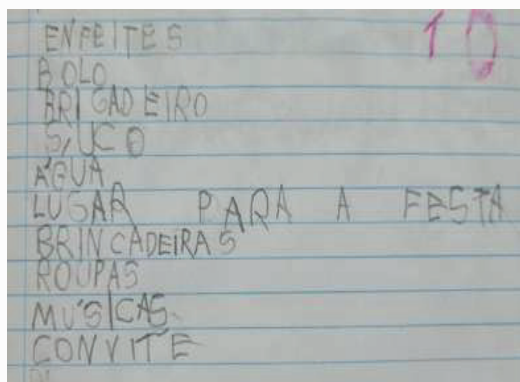 ENFEITES 10
BOLO
BRIGADEIRO
SUCO
ÁGUA
LUGAR PARA A FESTA
BRINCADEIRAS
ROUPAS
MÚSICAS
CONVITE